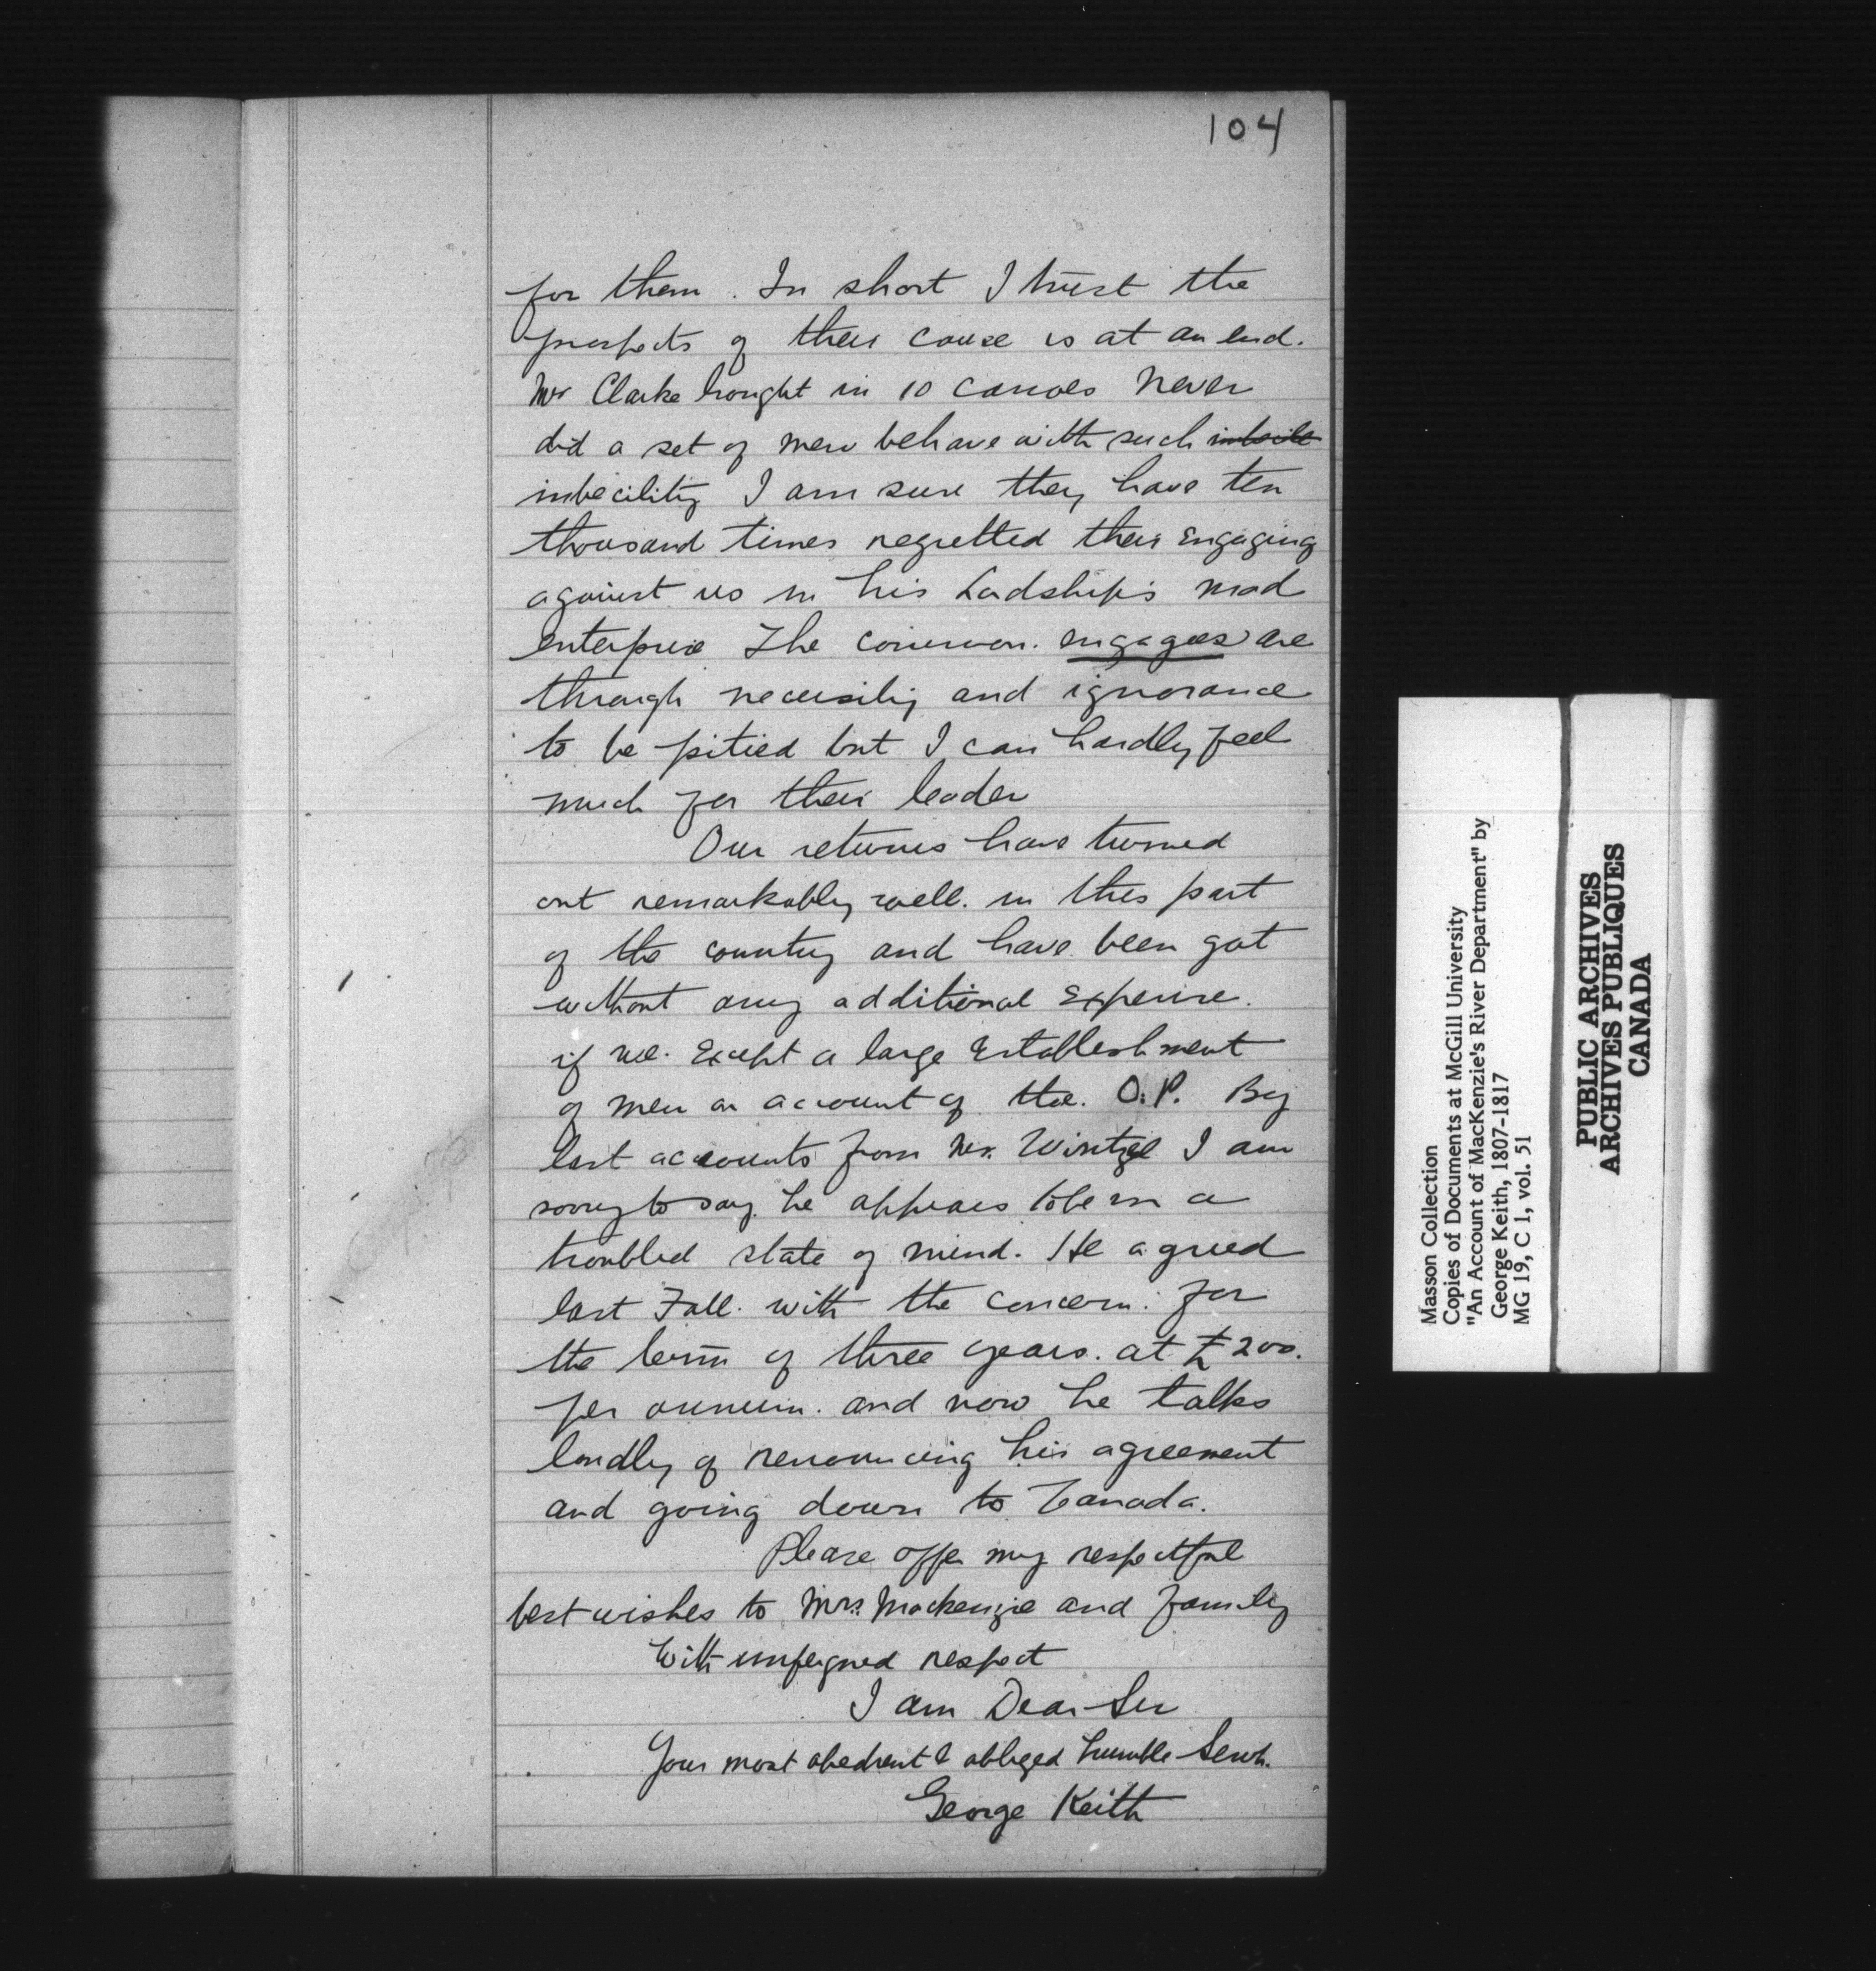 104
for them. In short I trust the
prospects of their cause is at an end.
Mr Clarke brought in 10 canoes never
did a set of men behave with such imbecile
imbecility I am sure they have ten
thousand times regretted their engaging
against us in his Lordship's mad
enterprise The common. engagees are
through necessity and ignorance
to be pitied but I can hardly feel
much for their leader
Our returns have turned
out remarkably well. in this part
of the country and have been got
without any additional expense.
if we. except a large establishment
of men on account of the. O.P. By
last accounts from Mr. Wintzel I am
sorry to say he appears to be in a
troubled state of mind. He agreed
last Fall. with the concern. for
the term of three years. at £200.
per annum. and now he talks
loudly of renouncing his agreement
and going down to Canada.
Please offer my respectful
best wishes to Mrs. Mackenzie and family
With unfeigned respect
I am Dear Sir
Your most obedient & obliged humble Servt.
George Keith
Masson Collection
Copies of Documents at McGill University
"An Account of MacKenzie's River Department" by
George Keith, 1807-1817
MG 19, C 1, vol. 51
PUBLIC ARCHIVES
ARCHIVES PUBLIQUES
CANADA